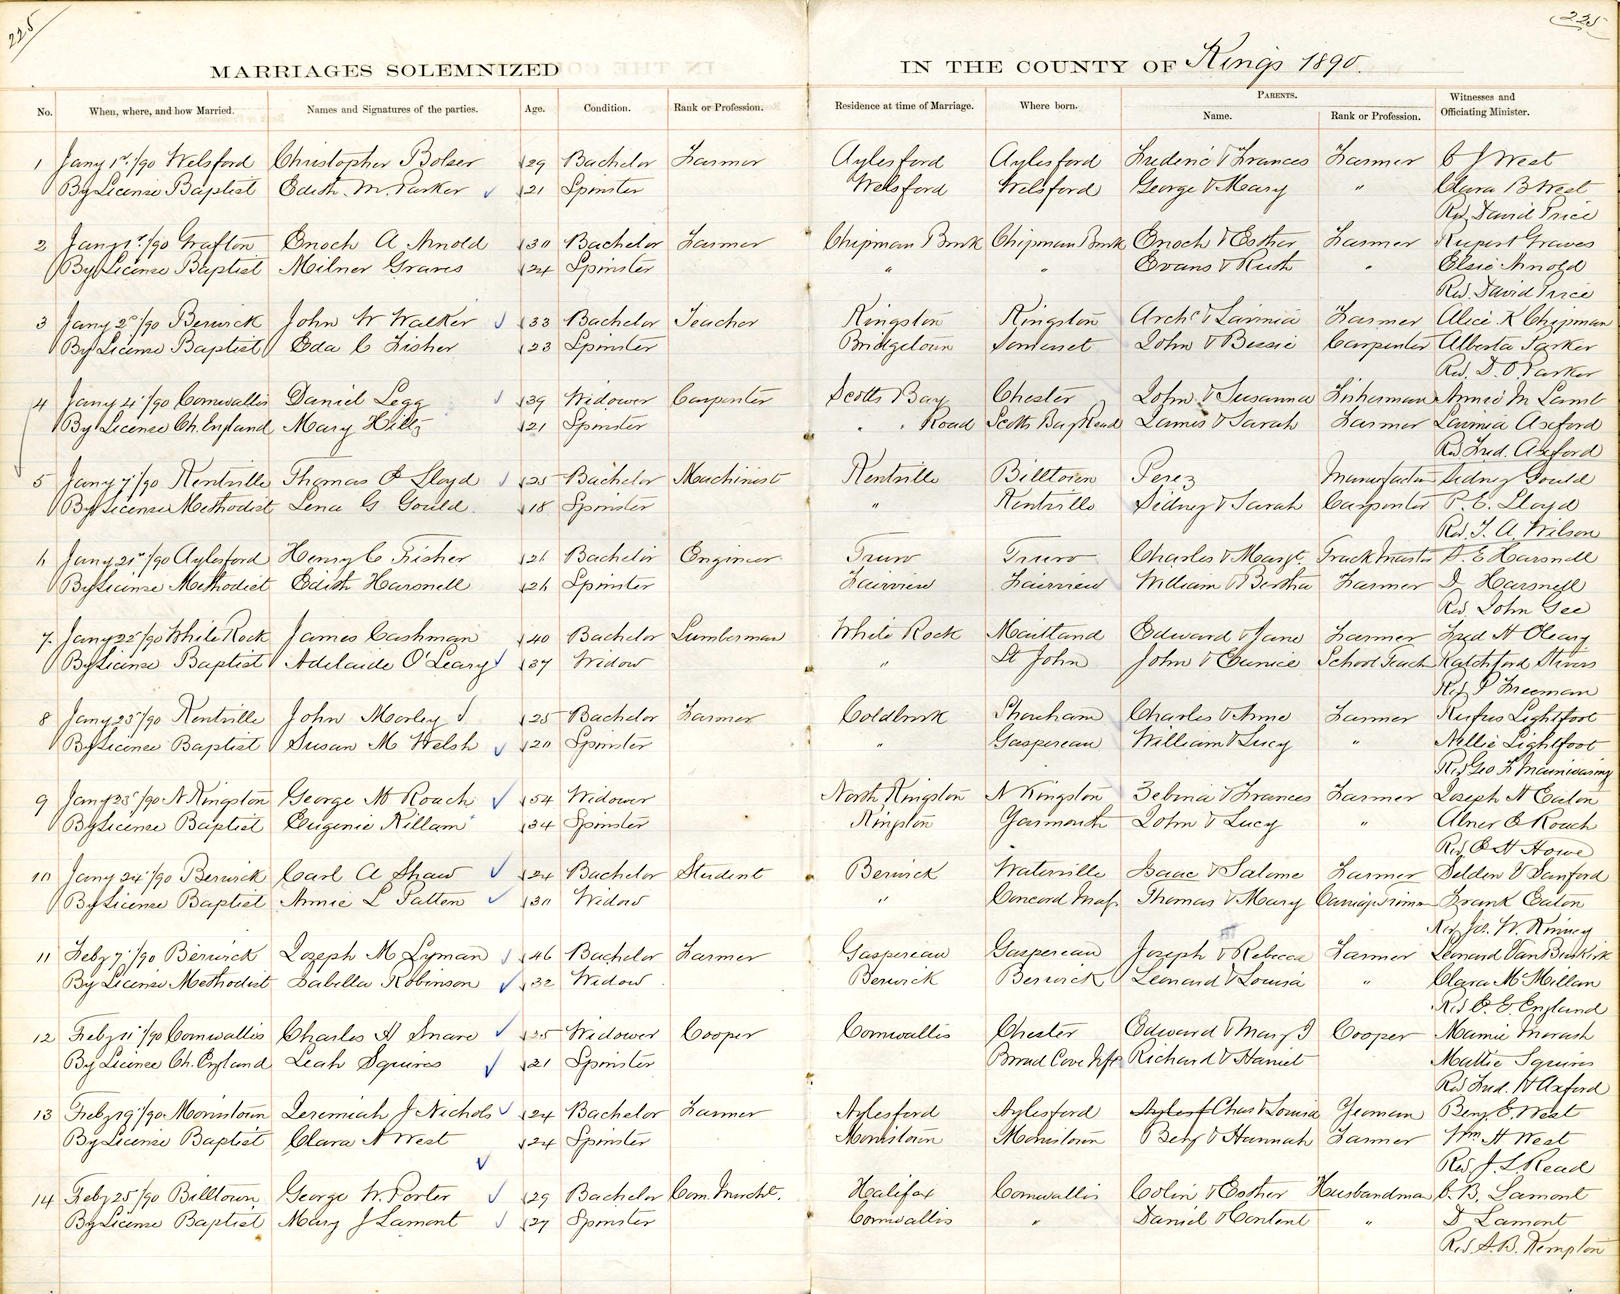 225
225
MARRIAGES SOLEMNIZED IN THE COUNTY OF Kings 1890.
No. When, where, and how Married. Names and Signatures of the parties. Age. Condition. Rank or Profession. Residence at time of Marriage. Where born. PARENTS. Name. Rank or Profession. Witnesses and Officiating Minister.
1 Jany 1st/90 Welsford Christopher Bolser 29 Bachelor Farmer Aylesford Aylesford Frederic & Frances Farmer C J West
By License Baptist Edith M. Parker 21 Spinster Welsford Welsford George & Mary " Clara B West
Rev. David Price
2 Jany 1st/90 Grafton Enoch A Arnold 30 Bachelor Farmer Chipman Brook Chipman Brook Enoch & Esther Farmer Rupert Graves
By License Baptist Milner Graves 24 Spinster " " Evans & Ruth " Elsie Arnold
Rev. David Price
3 Jany 2d/90 Berwick John W Walker 33 Bachelor Teacher Kingston Kingston Archd & Lavinia Farmer Alice K Chipman
By License Baptist Eda C Fisher 23 Spinster Bridgetown Somerset John & Bessie Carpenter Alberta Parker
Rev. D. O. Parker
4 Jany 4/90 Cornwallis Daniel Legg 39 Widower Carpenter Scotts Bay Chester John & Susanna Fisherman Annie M Lamb
By License Ch. England Mary Hiltz 21 Spinster " " Road Scotts Bay Road James & Sarah Farmer Lavinia Axford
Rev Fred. Axford
5 Jany 7/90 Kentville Thomas P Lloyd 25 Bachelor Machinist Kentville Billtown Perez Manufacturer Sidney Gould
By License Methodist Lena G Gould 18 Spinster " Kentville Sidney & Sarah Carpenter P. E. Lloyd
Rev. T. A. Wilson
6 Jany 21st/90 Aylesford Henry C Fisher 26 Bachelor Engineer Truro Truro Charles & Margt. Track Master S. E Harsnell
By License Methodist Edith Harsnell 26 Spinster Fairview Fairview William & Bertha Farmer D Harsnell
Rev John Gee
7. Jany 22d/90 White Rock James Cashman 40 Bachelor Lumberman White Rock Maitland Edward & Jane Farmer Fred H Oleary
By License Baptist Adelaide O'Leary 37 Widow " St John John & Eunice School Teach Ratchford Stivers
Rev P Freeman
8 Jany 23/90 Kentville John Morley 25 Bachelor Farmer Coldbrook Shoreham Charles & Anne Farmer Rufus Lightfoot
By License Baptist Susan M Welsh 20 Spinster " Gaspereau William & Lucy " Nellie Lightfoot
Rev Geo F Mainwaring
9 Jany 23/90 N Kingston George M Roach 54 Widower North Kingston N Kingston Zebina & Frances Farmer Joseph H Eaton
By License Baptist Eugenie Killam 34 Spinster Kingston Yarmouth John & Lucy " Abner E Roach
Rev E H Howe
10 Jany 24/90 Berwick Carl A Shaw 24 Bachelor Student Berwick Waterville Isaac & Salome Farmer Selden V Sanford
By License Baptist Annie L Patten 30 Widow " Concord Mass Thomas & Mary Carriage Trimmer Frank Eaton
Rev Jos. W. Kinney
11 Feby 7/90 Berwick Joseph M Lyman 46 Bachelor Farmer Gaspereau Gaspereau Joseph & Rebecca Farmer Leonard Van Buskirk
By License Methodist Isabella Robinson 32 Widow Berwick Berwick Leonard & Louisa " Clara McMillan
Rev E. E. England
12 Feby 11/90 Cornwallis Charles H Snare 35 Widower Cooper Cornwallis Chester Edward & Mary J Cooper Mamie Marsh
By License Ch. England Leah Squires 21 Spinster Broad Cove Nfld Richard & Harriet Mattie Squires
Rev Fred. H Axford
13 Feby 19/90. Morristown Jeremiah J Nichols 24 Bachelor Farmer Aylesford Aylesford Aylesf Chas & Louisa Yeoman Benj. E. West
By License Baptist Clara A West 24 Spinster Morristown Morristown Benj & Hannah Farmer Wm. H West
Rev. J. L. Read
14 Feby 25/90 Billtown George W. Porter 29 Bachelor Com. Mercht. Halifax Cornwallis Colin & Esther Husbandman C. B. Lamont
By License Baptist Mary J Lamont 27 Spinster Cornwallis " Daniel & Content " D Lamont
Rev. S. B. Kempton